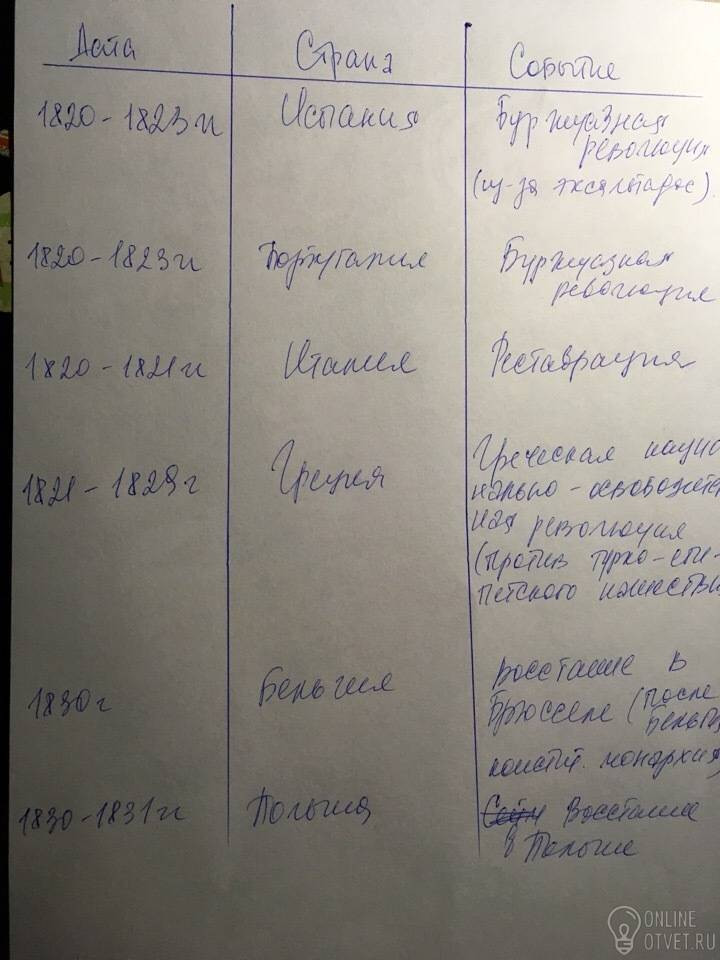 Дата Страна Событие
1820-1823гг Испания Буржуазная
революция
(из-за эксальтадос).
1820-1823гг Португалия Буржуазная
революция
1820-1821гг Италия Реставрация
1821-1829г Греция Греческая нацио
нально-освободите
ная революция
(против турко-еги-
петского нашестви
1830г Бельгия Восстание в
Брюсселе (после
Бельги
констит. монархия)
1830-1831гг Польша Восстание
в Польше
ONLINE
OTVET.RU